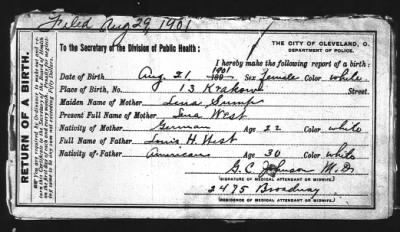 Filed Aug 29, 1901
THE CITY OF CLEVELAND, O.
DEPARTMENT OF POLICE.
To the Secretary of the Division of Public Health:
I hereby make the following report of a birth:
Date of Birth Aug. 21 1901 Sex Female Color white
Place of Birth, No. 13 Krakow Street.
Maiden Name of Mother Lena Sump
Present Full Name of Mother Lena West
Nativity of Mother German Age 22 Color white
Full Name of Father Louis H. West
Nativity of Father American Age 30 Color white
G. C. Johnson M.D.
(SIGNATURE OF MEDICAL ATTENDANT OR MIDWIFE.)
2475 Broadway
(RESIDENCE OF MEDICAL ATTENDANT OR MIDWIFE.)
RETURN OF A BIRTH.